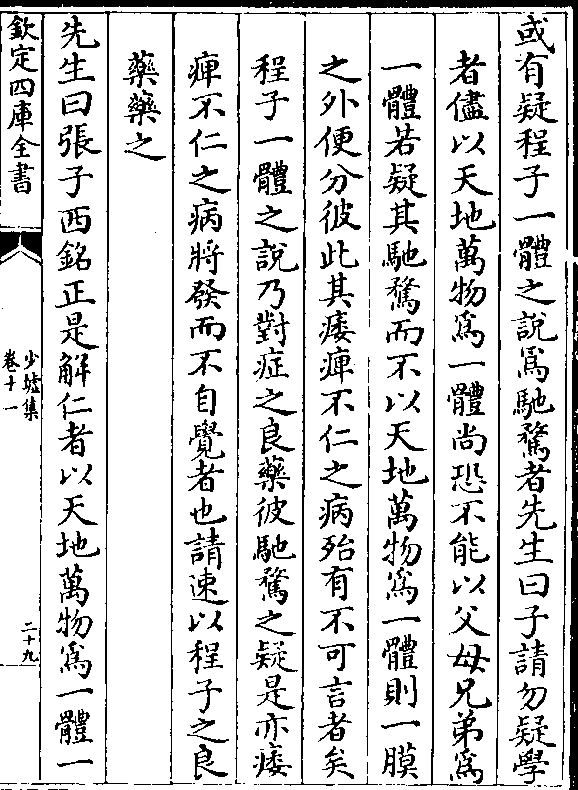 或有疑程子一體之說為馳騖者先生曰子請勿疑學
者儘以天地萬物爲一體尚恐不能以父母兄弟爲
一體若疑其馳騖而不以天地萬物爲一體則一膜
之外便分彼此其痿痺不仁之病殆有不可言者矣
程子一體之說乃對症之良藥彼馳騖之疑是亦痿
痺不仁之病將發而不自覺者也請速以程子之良
藥藥之
先生曰張子西銘正是解仁者以天地萬物爲一體一
欽定四庫全書
少墟集
卷十一
二十九